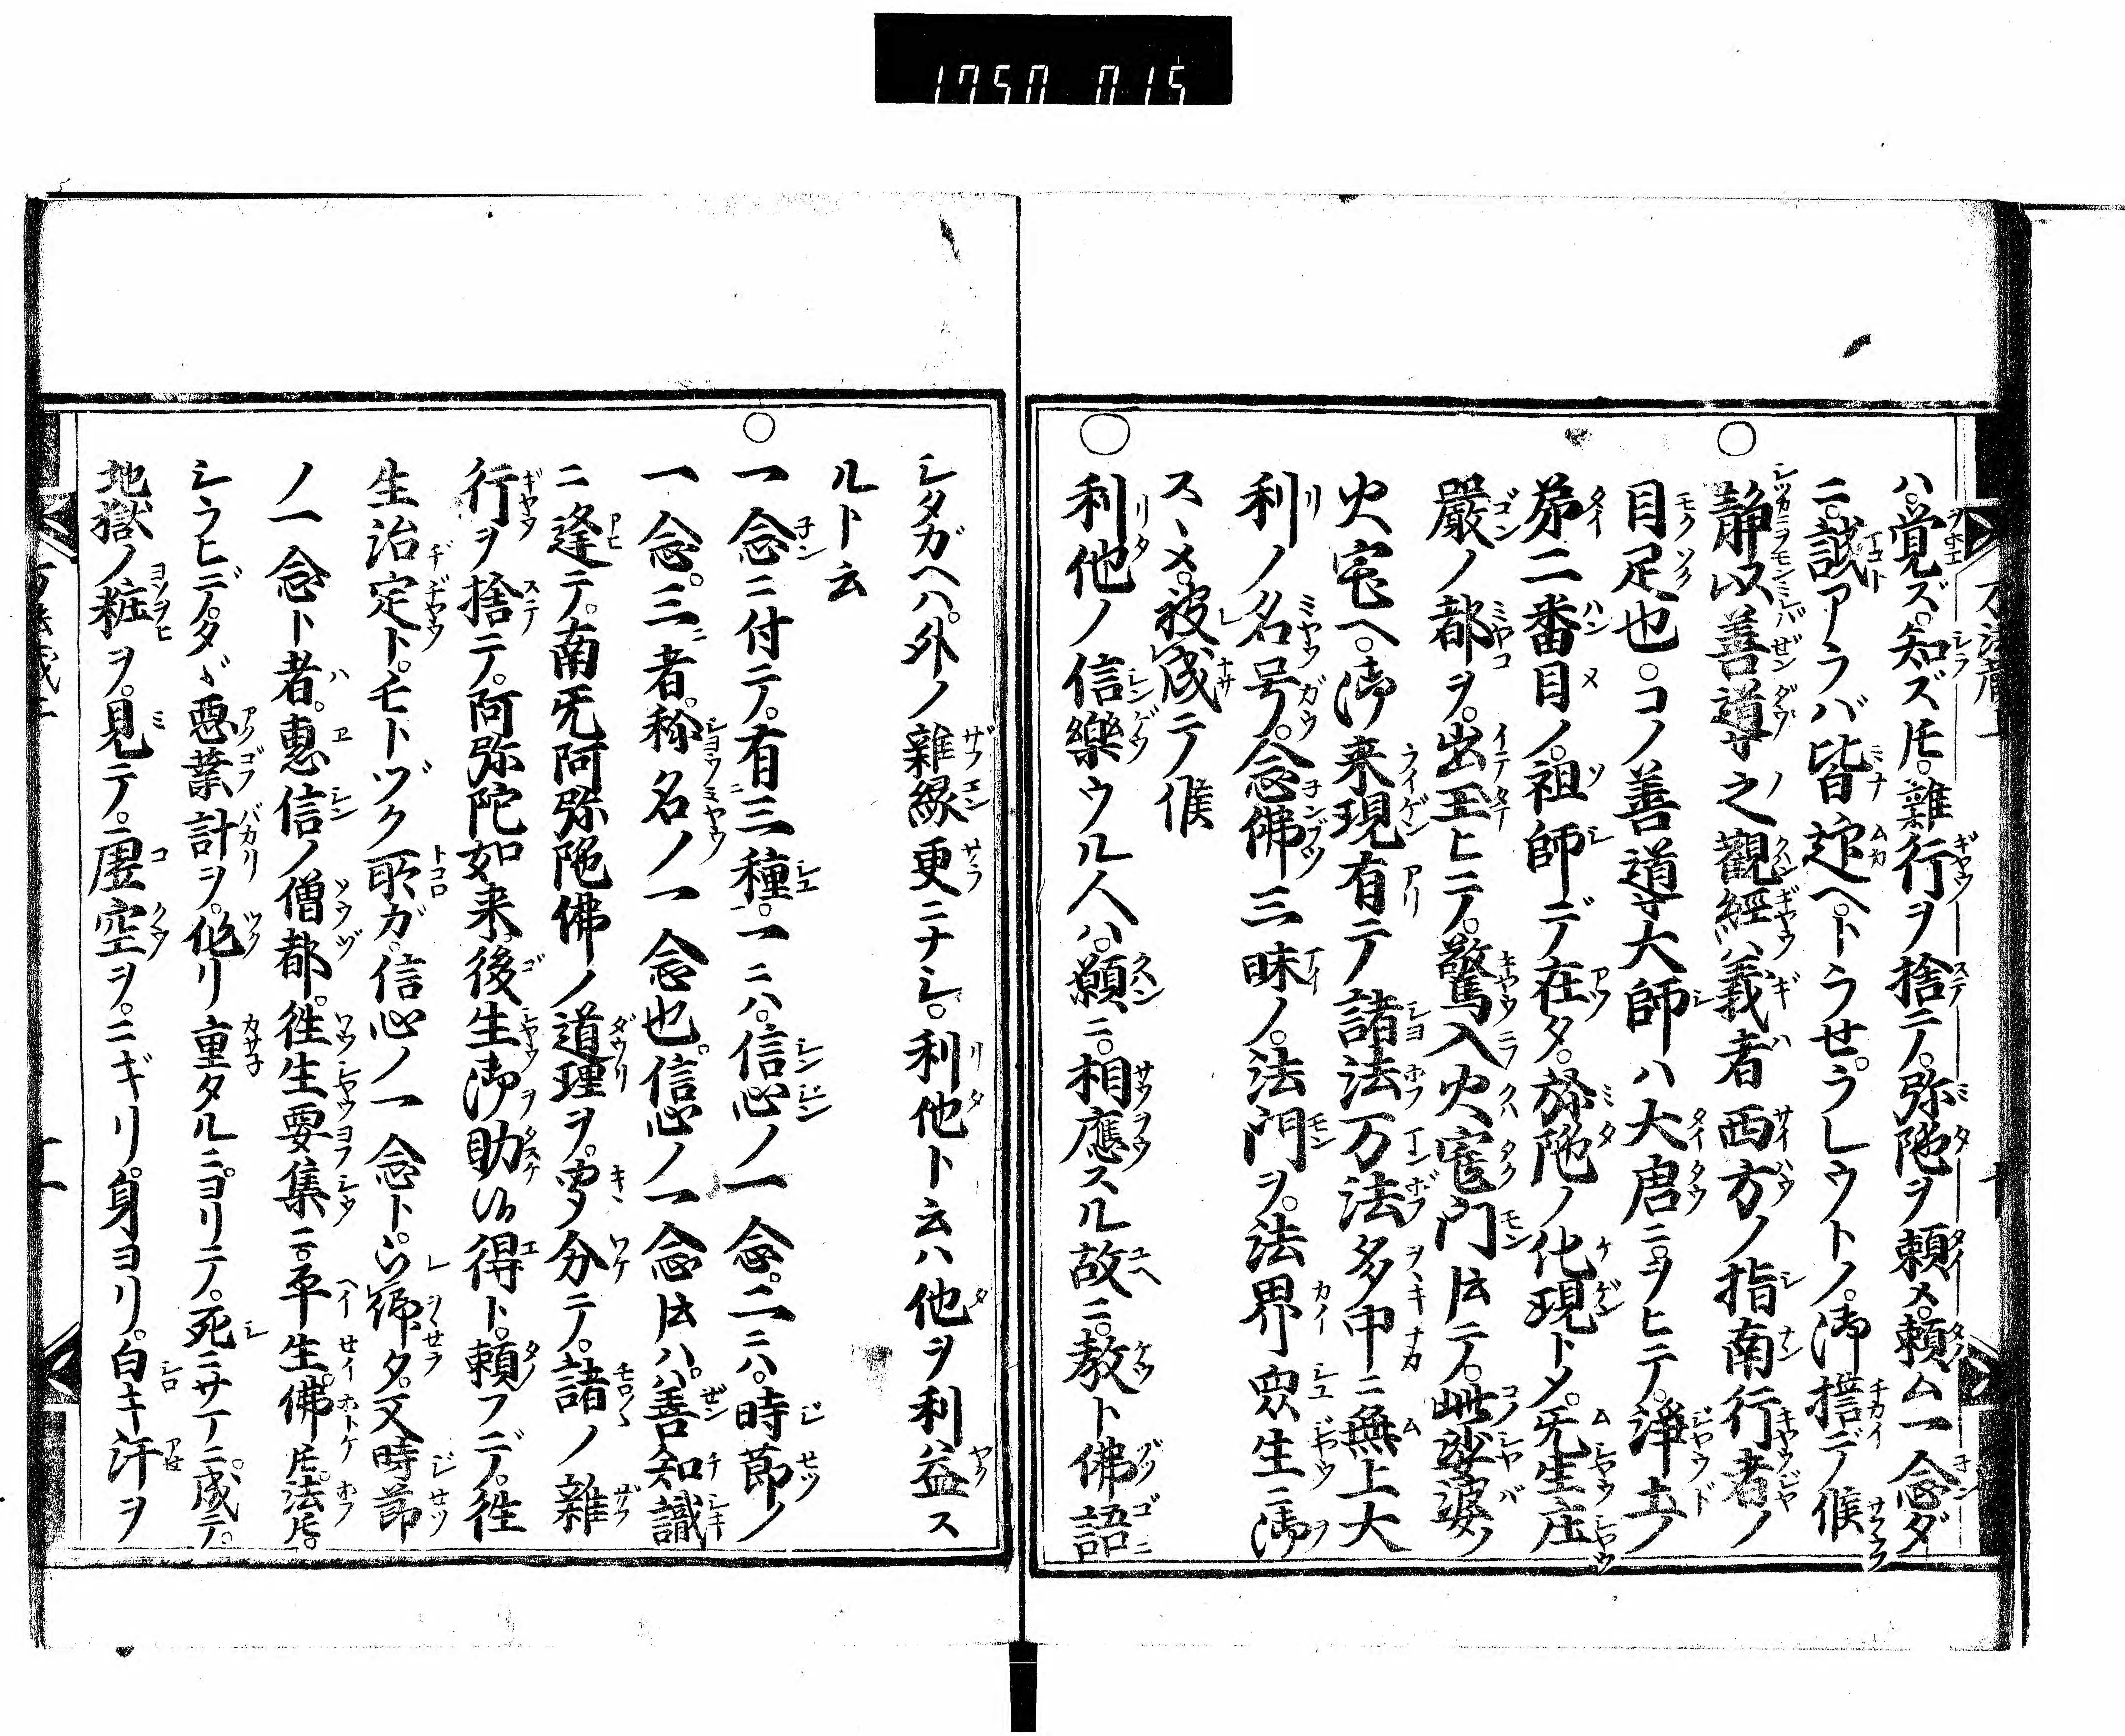 1750 015
ハ。覚ズ。知ズ𪜈。雜行ヲ捨テ。弥陀ヲ頼メ。頼ム一念ダ
ニ。誠アラバ皆迎ヘトラせ。ラレウトノ。御誓デ候
静以善導之觀經義者西方ノ指南行者ノ
目足也。コノ善導大師ハ大唐ニヲヒテ。淨土ノ
第二番目ノ。祖師デ在タ。弥陀ノ化現トメ。无生庄
嚴ノ都ヲ。出玉ヒテ。驚入火宅門𪜈テ。此娑婆ノ
火宅ヘ。御来現有テ諸法万法多中ニ無上大
利ノ名号。念佛三昧ノ。法門ヲ。法界衆生ニ御
スヽメ。被成テ候
利他ノ信樂ウル人ハ。願ニ。相應スル故ニ。教ト佛語
シタガヘハ。外ノ雜縁更ニナシ。利他ト云ハ他ヲ利益ス
ルト云
一念ニ付テ。有三種。一ニハ。信心ノ一念。二ニハ。時節ノ
一念。三者。称名ノ一念也。信心ノ一念𪜈ハ。善知識
ニ逢テ。南无阿弥陀佛ノ道理ヲ。聞分テ。諸ノ雜
行ヲ捨テ。阿弥陀如来。後生御助候得ト。頼フデ。徃
生治定ト。モトヅク所ガ。信心ノ一念ト。被仰タ。又時節
ノ一念ト者。惠信ノ僧都。徃生要集ニ。平生。佛𪜈。法𪜈。
シラヒデ。タヾ悪業計ヲ。作リ重タルニヨリテ。死ニサマニ。成テ。
地獄ノ粧ヲ。見テ。虚空ヲ。ニギリ。身ヨリ。白キ汗ヲ